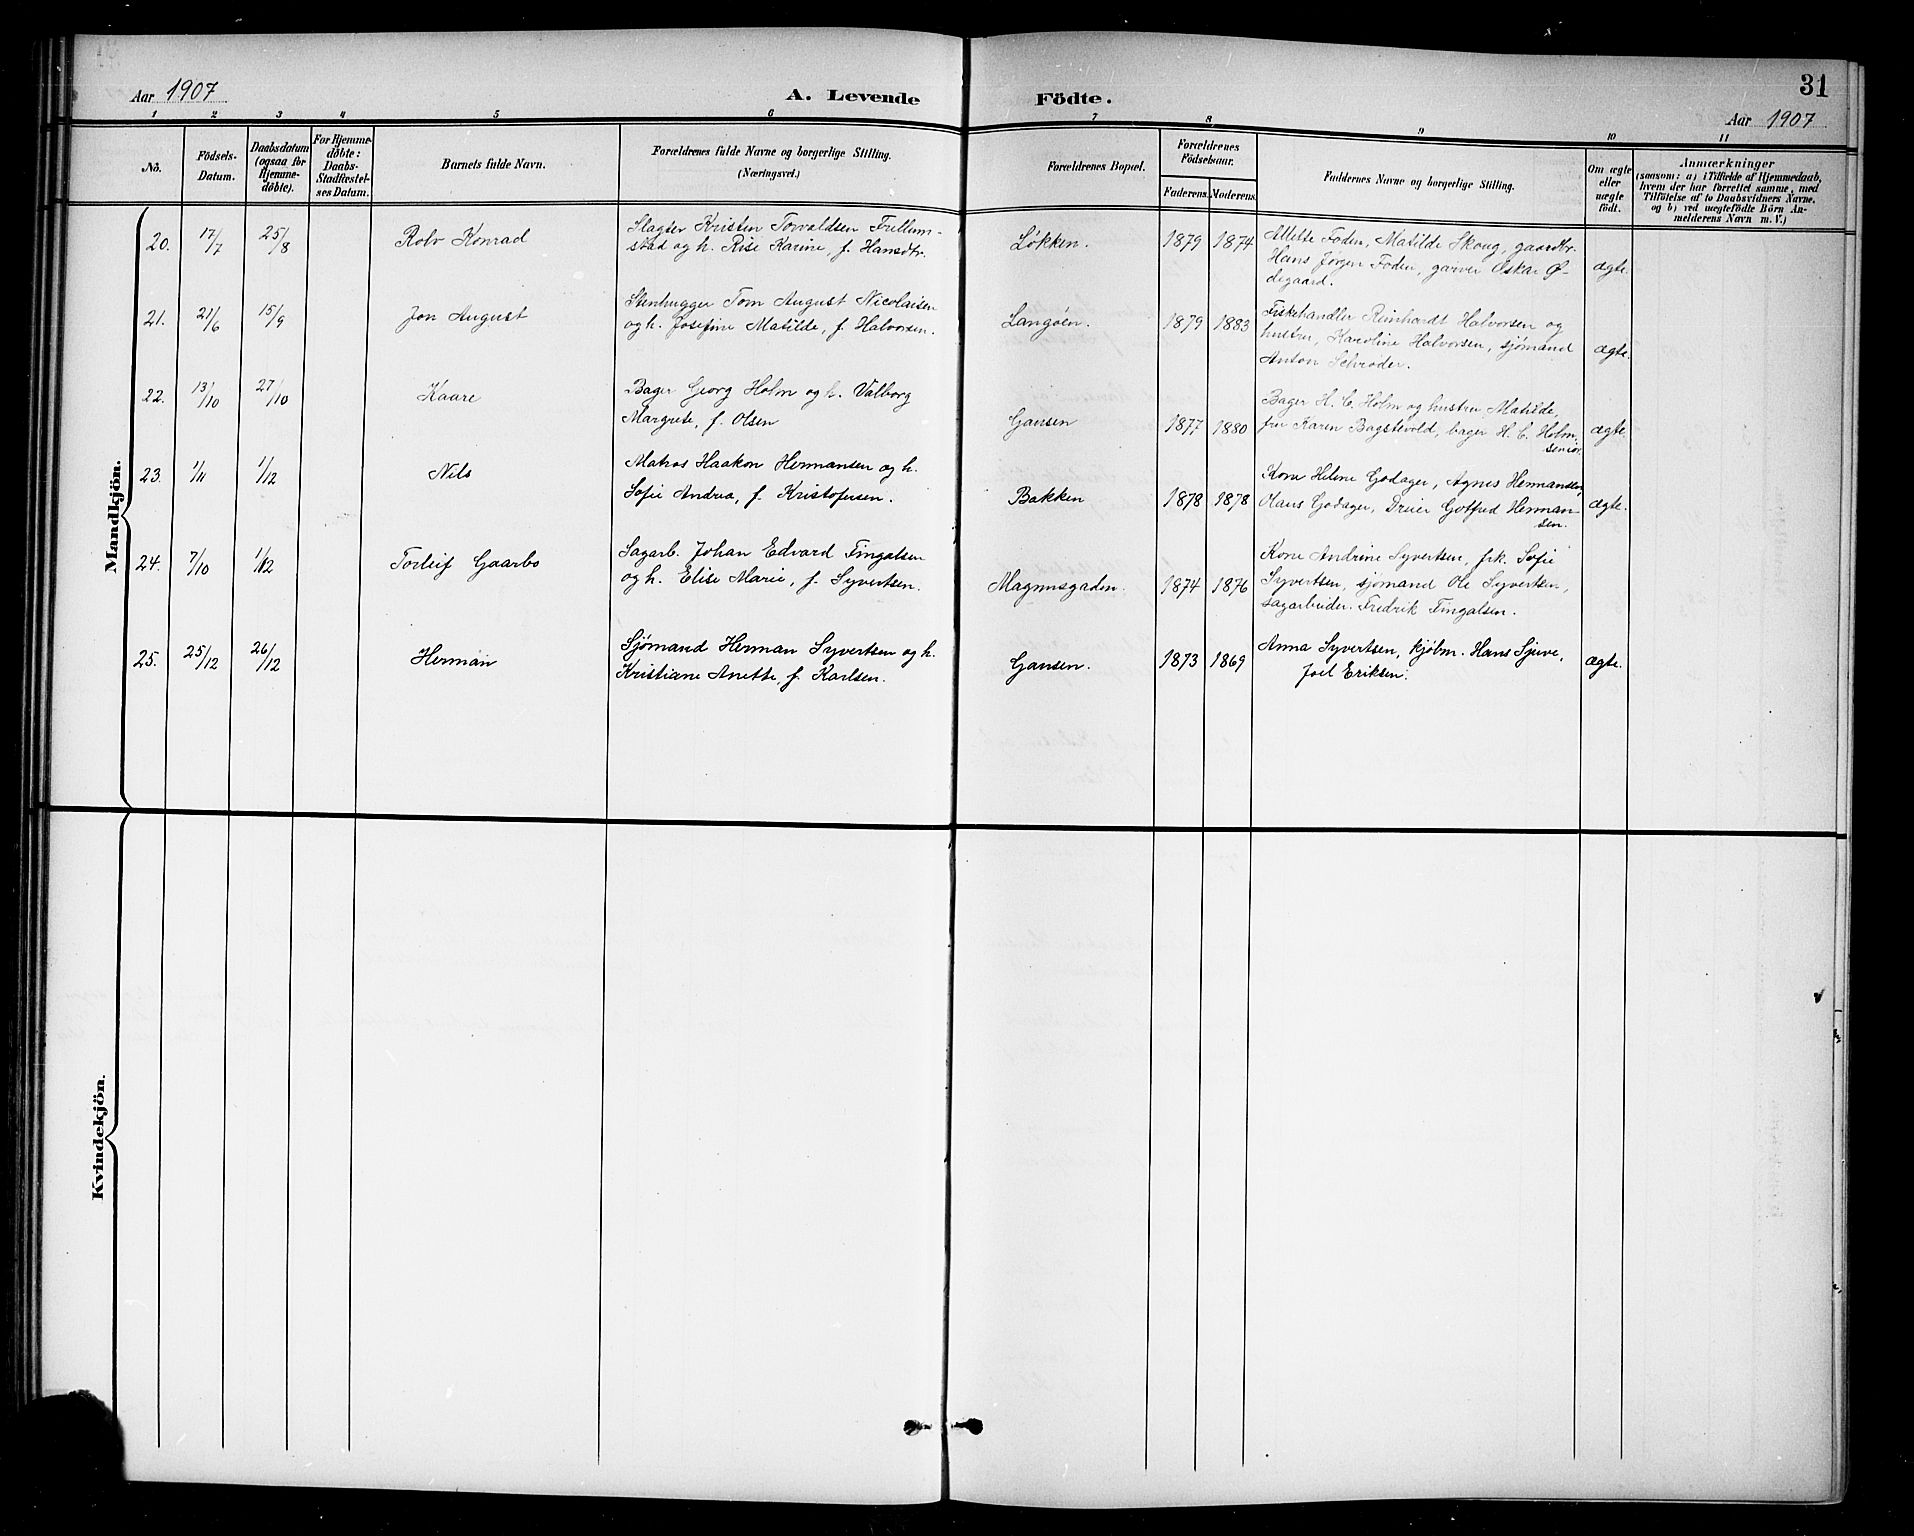 Aar 1907
A. Levende Födte.
31
Aar 1907
1 2 3 4 5 6 7 8 9 10 11
No.
Födsels-
Datum.
Daabsdatum
(ogsaa for
Hjemme-
döbte).
For Hjemme-
döbte:
Daabs-
Stadfæstel-
ses Datum.
Barnets fulde Navn.
Forældrenes fulde Navne og borgerlige Stilling.
(Næringsvei.)
Forældrenes Bopæl.
Forældrenes
Födselsaar.
Faderens. Moderens.
Faddernes Navne og borgerlige Stilling.
Om ægte
eller
uægte
födt.
Anmærkninger
(saasom: a) i Tilfælde af Hjemmedaab,
hvem der har forrettet samme, med
Tilföielse af to Daabsvidners Navne,
og b) ved uægtefödte Börn An-
melderens Navn m. V.)
Mandkjön.
20. 17/7 25/8 Rolv Konrad
Slagter Kristen Torvaldsen Frellum-
stad og h. Rise Karine, f. Hansdtr.
Løkken. 1879 1874
Mette Foden, Matilde Skoug, gaardbr.
Hans Jørgen Foden, garver Oskar Ø-
degaard.
ægte.
21. 21/6 15/9 Jon August
Stenhugger Tom August Nicolaisen
og h. Josefine Matilde, f. Halvorsen.
Langøen. 1879 1883
Fiskehandler Reinhardt Halvorsen og
hustru, Karoline Halvorsen, sjømand
Anton Schrøder.
ægte.
22. 13/10 27/10 Kaare
Bager Georg Holm og h. Valborg
Margrete, f. Olsen
Gansen 1877 1880
Bager H. C. Holm og hustru Matilde,
fru Karen Bagstevold, bager H. C. Holm
senior.
ægte.
23. 1/11 1/12 Nils
Matros Haakon Hermansen og h.
Sofie Andrea, f. Kristofersen.
Bakken 1878 1878
Kone Helene Godager, Agnes Hermansen,
Hans Godager, Dreier Gotfred Herman-
sen.
ægte.
24. 7/10 1/12 Torleif Gaarbo
Sagarb. Johan Edvard Fingalsen
og h. Elise Marie, f. Syvertsen.
Magnusgaden. 1874 1876
Kone Andrine Syvertsen, frk. Sofie
Syvertsen, sjømand Ole Syvertsen,
sagarbeider Fredrik Fingalsen.
25. 25/12 26/12 Herman
Sjømand Herman Syvertsen og h.
Kristiane Anette, f. Karlsen.
Gansen. 1873 1869
Anna Syvertsen, kjøbm. Hans Sjuve,
Joel Eriksen.
ægte.
Kvindekjön.